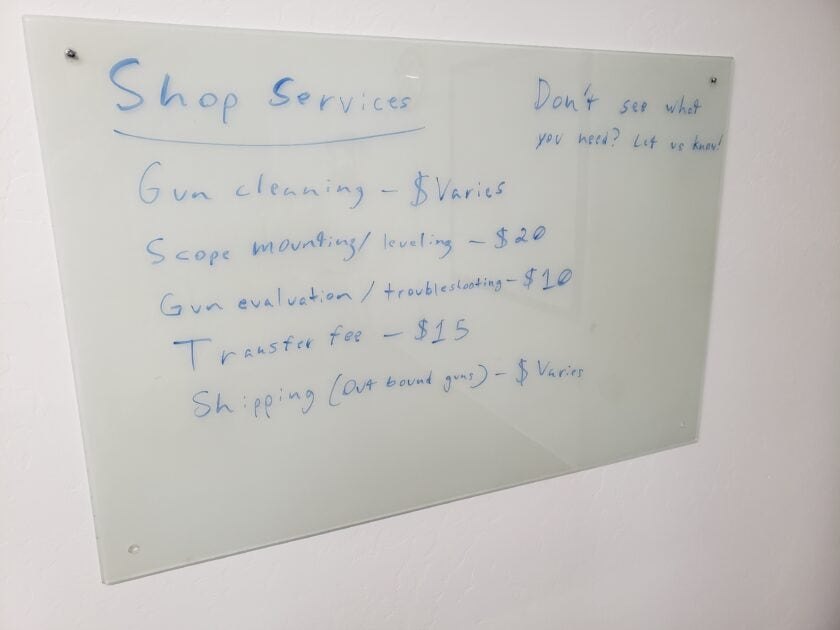 Shop Services
Don't see what
you need? Let us know!
Gun cleaning - $Varies
Scope mounting/leveling - $20
Gun evaluation/troubleshooting - $10
Transfer fee - $15
Shipping (Out bound guns) - $Varies